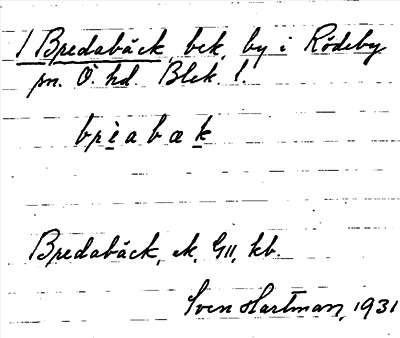 1 Bredabäck bek. by i Rödeby
sn. Ö. hd. Blek. l.
brèabæk
Bredabäck, ek. G11, kb.
Sven Hartman, 1931